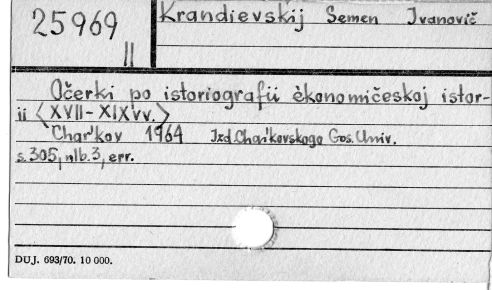 25969
II
Krandievskij Semen Ivanovič
Očerki po istoriografii ėkonomičeskoj istor-
ii <XVII-XIXvv.>
Char'kov 1964 Izd.Char'kovskogo Gos.Univ.
s.305, nlb.3, err.
DUJ. 693/70. 10 000.